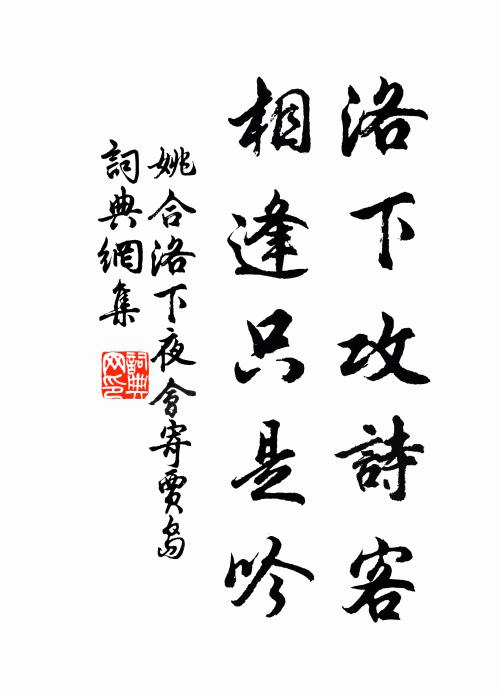 洛下攻詩客
相逢只是吟
姚合洛下夜會寄賈島
詞典網集
詞典網印